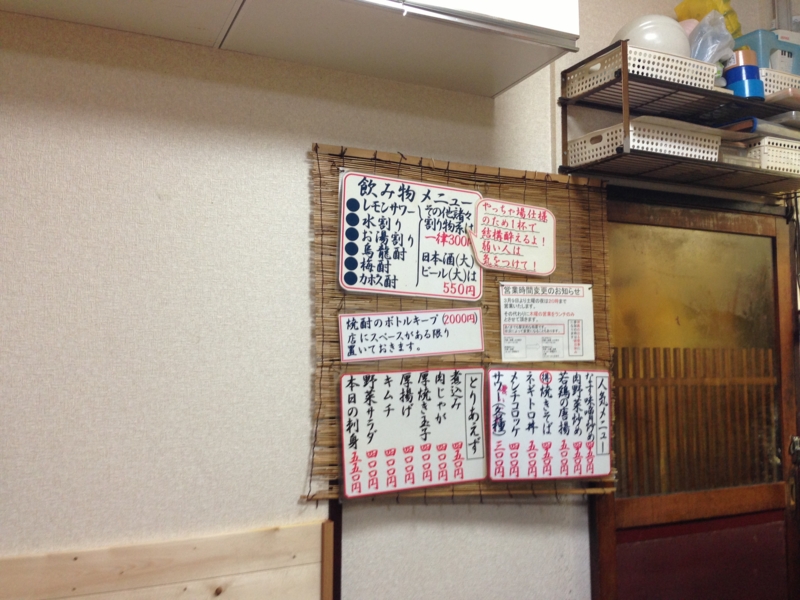 飲み物メニュー
●レモンサワー
●水割り
●お湯割り
●烏龍酎
●梅酎
●カボス酎
その他諸々
割り物系は
一律300
日本酒(大)
ビール(大)は
550円
やっちゃ場仕様
のため1杯で
結構酔えるよ!
弱い人は
気をつけて!
焼酎のボトルキープ(2000円)
店にスペースがある限り
置いておきます。
営業時間変更のお知らせ
営業いたします。
とさせて頂きます。
とりあえず
煮込み 四五〇円
肉じゃが 四〇〇円
厚焼き玉子 四〇〇円
厚揚げ 四〇〇円
キムチ 四〇〇円
野菜サラダ 四〇〇円
本日の刺身 五五〇円
人気メニュー
なす味噌炒め 四五〇円
肉野菜炒め 四五〇円
若鶏の唐揚 五〇〇円
焼きそば 四五〇円
ネギトロ丼 五〇〇円
メンチコロッケ 四五〇円
サワー(各種) 三〇〇円